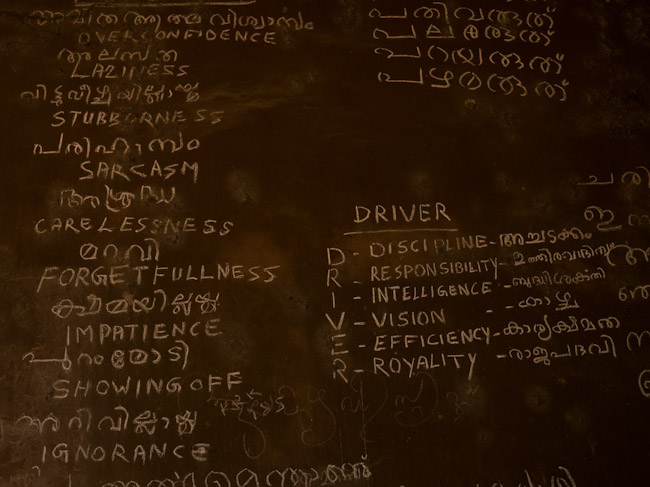 അമിത ആത്മ വിശ്വാസം
OVERCONFIDENCE
അലസത
LAZINESS
വിട്ടുവീഴ്ചയില്ലായ്മ
STUBBORNESS
പരിഹാസം
SARCASM
അശ്രദ്ധ
CARELESSNESS
മറവി
FORGETFULLNESS
ക്ഷമയില്ലായ്മ
IMPATIENCE
പുറംമോടി
SHOWING OFF
അറിവില്ലായ്മ
IGNORANCE
പതിവരുത്
പലതരുത്
പറയരുത്
പഴതരുത്
DRIVER
D - DISCIPLINE - അച്ചടക്കം
R - RESPONSIBILITY - ഉത്തിരവാദിത്വം
I - INTELLIGENCE - ബുദ്ധിശക്തി
V - VISION - കാഴ്ച
E - EFFICIENCY - കാര്യക്ഷമത
R - ROYALITY - രാജപദവി